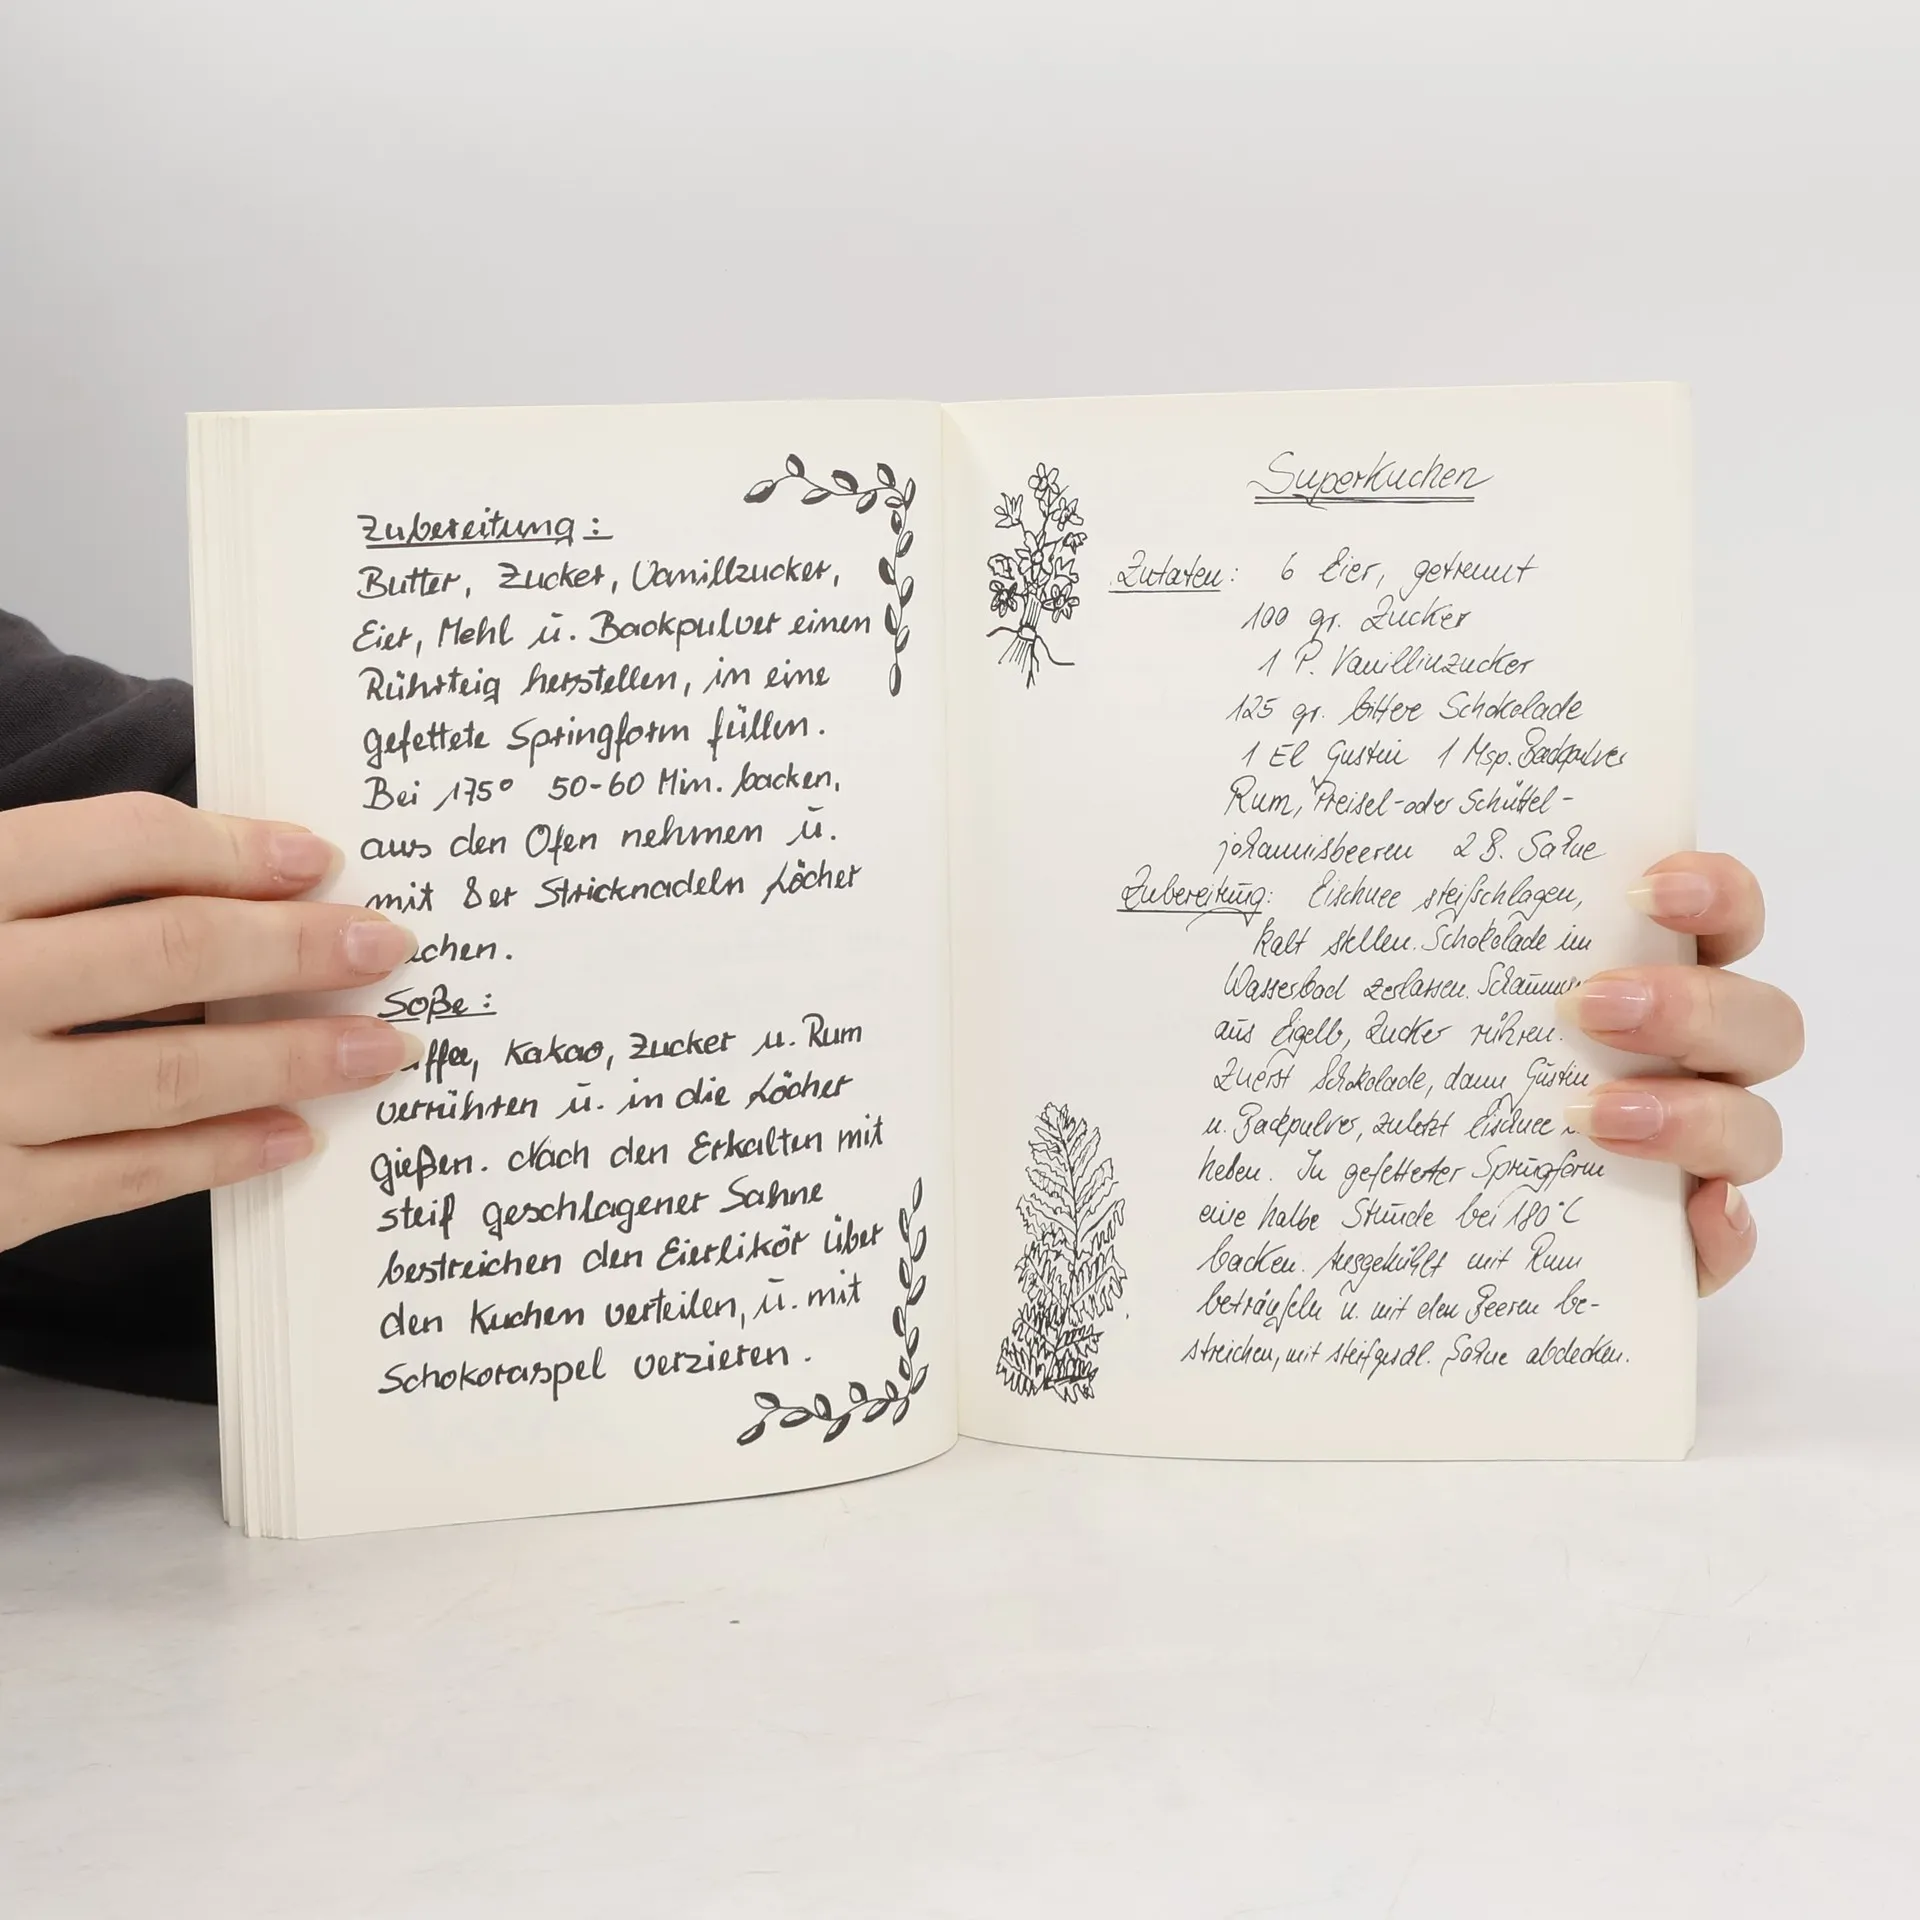 Zubereitung:
Butter, Zucker, Vanillzucker,
Eier, Mehl u. Backpulver einen
Rührteig herstellen, in eine
gefettete Springform füllen.
Bei 175° 50-60 Min. backen,
aus den Ofen nehmen u.
mit 8er Stricknadeln Löcher
chen.
Soße:
affee, Kakao, Zucker u. Rum
verrühren u. in die Löcher
gießen. Nach den Erkalten mit
steif geschlagener Sahne
bestreichen den Eierlikör über
den Kuchen verteilen, u. mit
Schokoraspel verzieren.
Superkuchen
Zutaten: 6 Eier, getrennt
100 gr. Zucker
1 P. Vanillinzucker
125 gr. bittere Schokolade
1 El Gustin 1 Msp. Backpulver
Rum, Preisel- oder Schüttel-
johannisbeeren 2 B. Sahne
Zubereitung: Eischnee steifschlagen,
kalt stellen. Schokolade im
Wasserbad zerlassen.
aus Eigelb, Zucker rühren.
Zuerst Schokolade, dann Gustin
u. Backpulver, zuletzt Eischnee
heben. In gefetteter Springform
eine halbe Stunde bei 180°C
backen. Ausgekühlt mit Rum
beträufeln u. mit den Beeren be-
streichen, mit steifgeschl. Sahne abdecken.